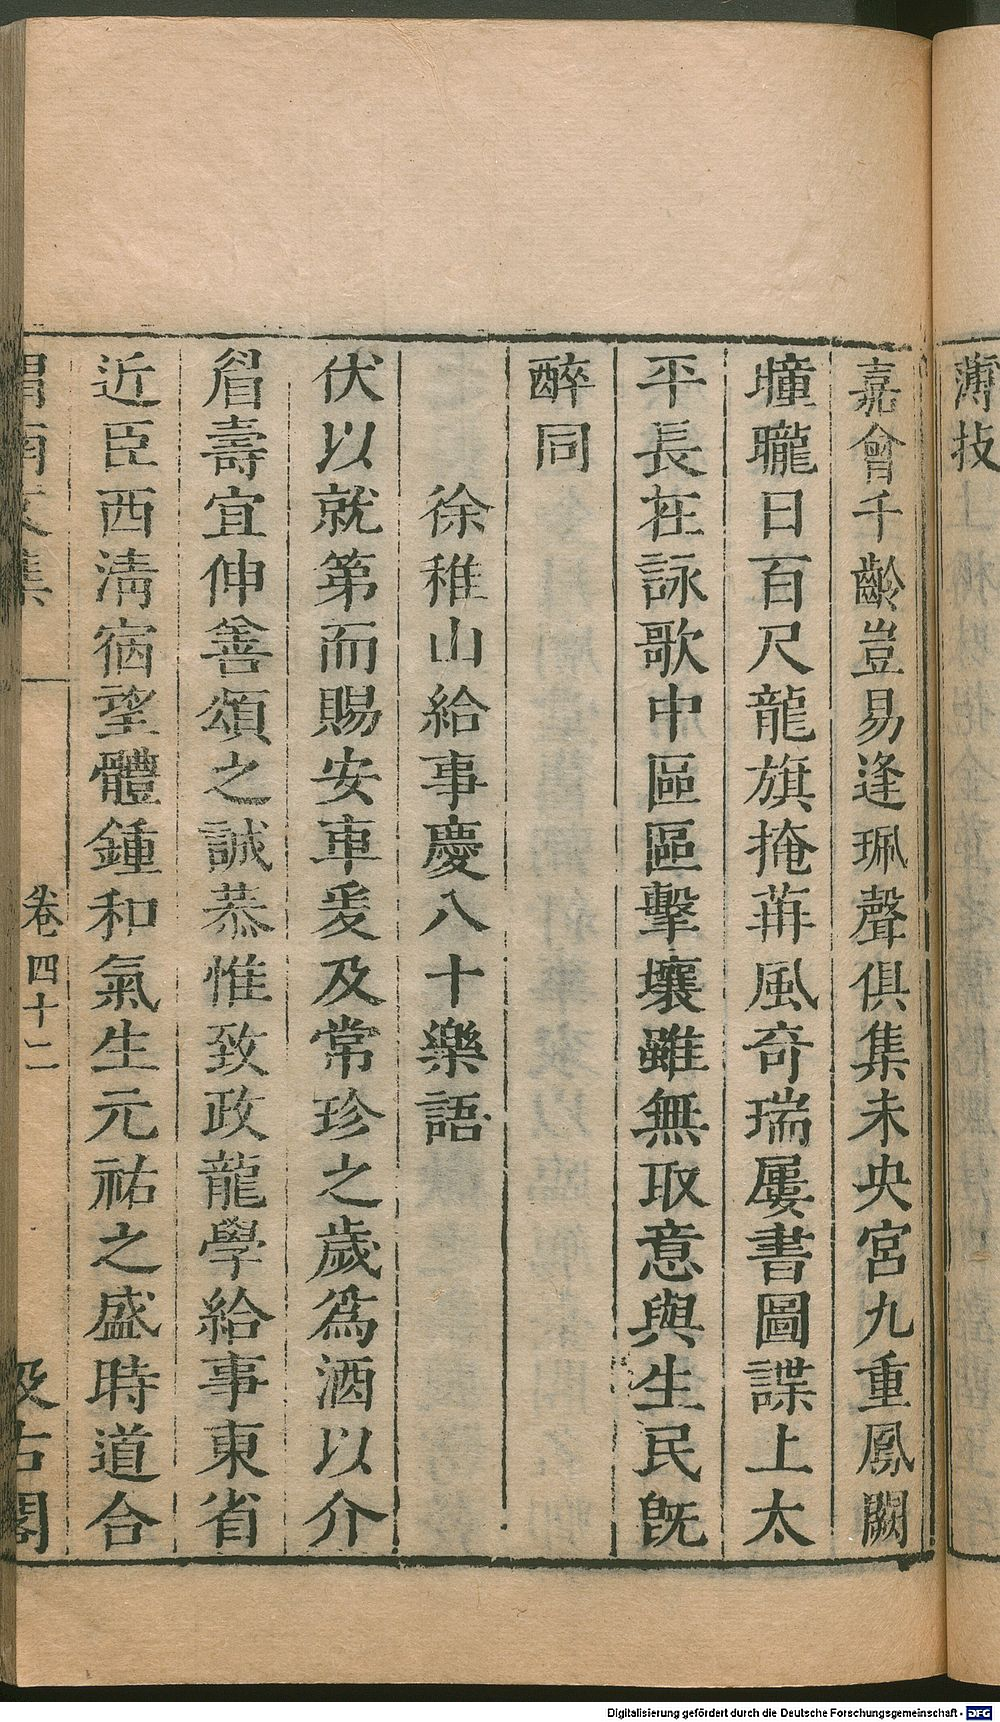 薄技
嘉會千齡豈易逢珮聲俱集未央宮九重鳳闕
曈曨日百尺龍旗掩苒風奇瑞屢書圖諜上太
平長在詠歌中區區擊壤雖無取意與生民旣
醉同
徐稚山給事慶八十樂語
伏以就第而賜安車爰及常珍之歲爲酒以介
眉壽宜伸善頌之誠恭惟致政龍學給事東省
近臣西淸宿望體鍾和氣生元祐之盛時道合
渭南文集
卷四十二
汲古閣
Digitalisierung gefördert durch die Deutsche Forschungsgemeinschaft - DFG